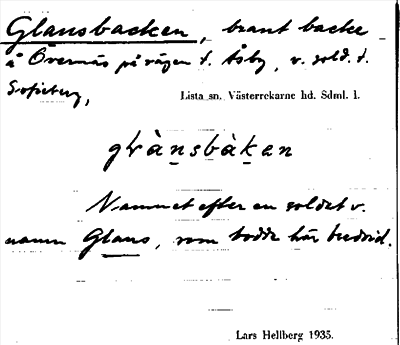 Glansbacken, brant backe
å Övernäs på vägen t. Åsby, v. sold. t.
Sofieberg,
Lista sn. Västerrekarne hd. Sdml. l.
glànsbàken
Namnet efter en soldat v.
namn Glans, som bodde här bredvid.
Lars Hellberg 1935.